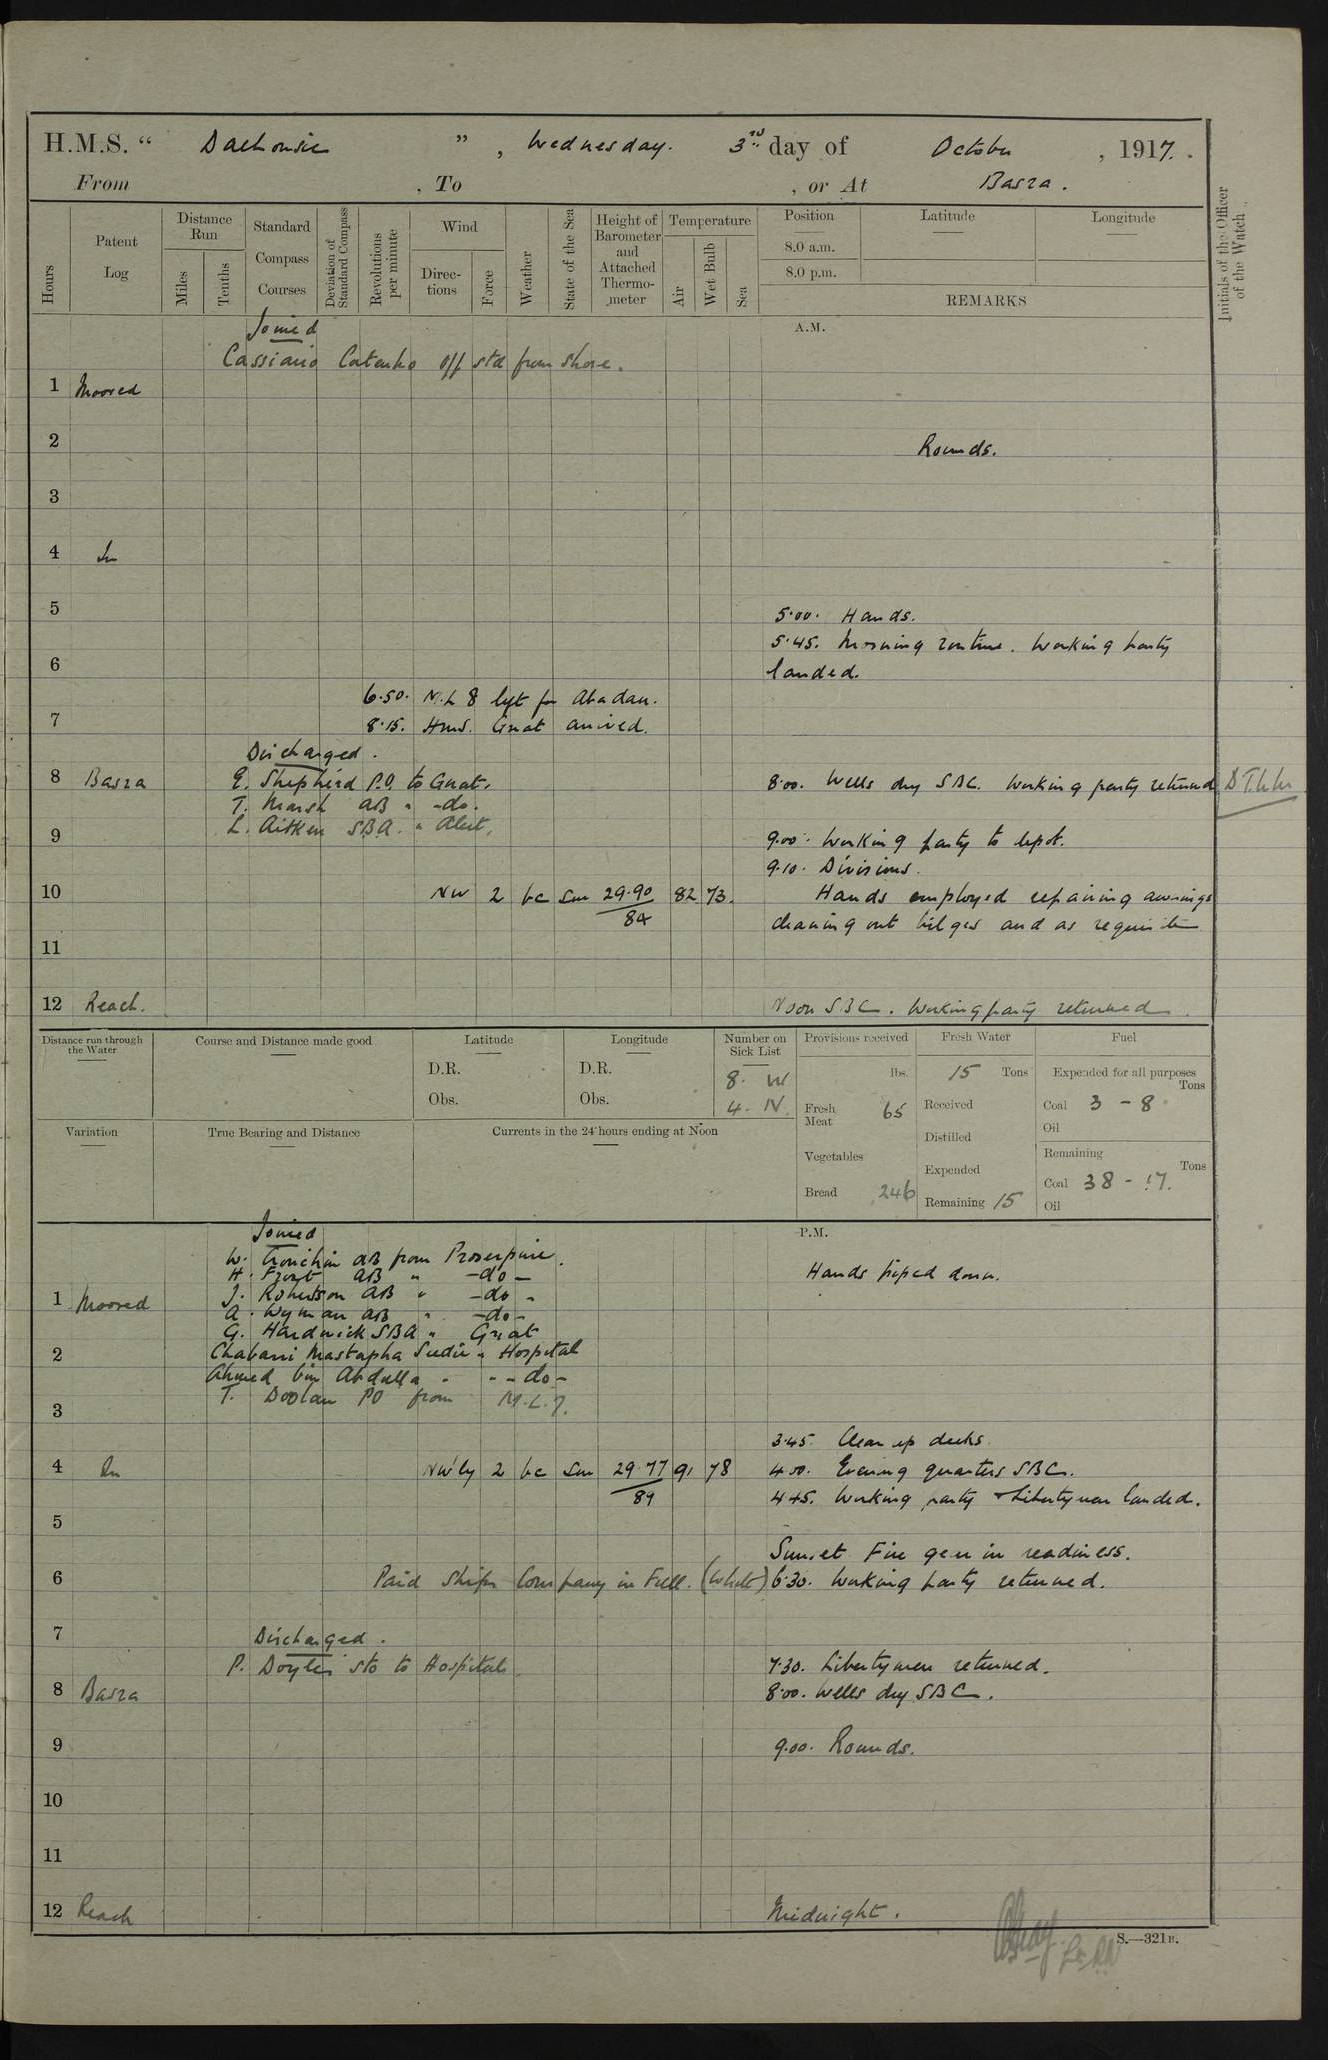 H.M.S. “ Dalhousie ” , Wednesday. 3rd day of October , 1917. .
From , To , or At Basra .
Hours
Patent Log
Distance Run
Miles
Tenths
Standard Compass Courses
Deviation of Standard Compass
Revolutions per minute
Wind
Direc-tions
Force
Weather
State of the Sea
Height of Barometer and Attached Thermo-meter
Temperature
Air
Wet Bulb
Sea
Position
8.0 a.m.
8.0 p.m.
Latitude
Longitude
REMARKS
Initials of the Officer of the Watch
A.M.
Joined
Cassiano off std from shore.
1 Moored
2 Rounds.
3
4 In
5 5.00. Hands.
5.45. Morning routine. Working party
6 landed.
6.50. M.L 8 left for Abadan.
7 8.15. H.M.S. Gnat arrived.
Discharged.
8 Basra E. Shepherd P.O. to Gnat. 8.00. Wells dry SBC. Working party returned
T. Marsh AB " -do.
L. Aitken SBA. " Alert.
9 9.00. Working party to depot.
9.10. Divisions.
10 NW 2 bc Sm 29.90 82 73. Hands employed repairing awnings
84 cleaning out bilges and as requisite
11
12 Reach. Noon SBC. Working party returned.
Distance run through the Water
Course and Distance made good
Latitude
D.R.
Obs.
Longitude
D.R.
Obs.
Number on Sick List
8. W
4. N.
Provisions received
lbs.
Fresh Meat 65
Vegetables
Bread 246
Fresh Water
15 Tons
Received
Distilled
Expended
Remaining 15
Fuel
Expended for all purposes
Tons
Coal 3 - 8
Oil
Remaining
Tons
Coal 38 - 17.
Oil
Variation
True Bearing and Distance
Currents in the 24 hours ending at Noon
P.M.
Joined
W. AB from Proserpine.
Hands piped down.
H. Frost AB " -do-
1 Moored J. Robertson AB " -do-
A. Wyman AB " -do-
G. Hardwick SBA " Gnat
2 Chabani Mastapha Seedie " Hospital
Ahmed bin Abdulla " - -do-
T. Doolan PO from M.L.7.
3
3.45. Clear up decks.
4 In NW'ly 2 bc Sm 29.77 91 78 4.00. Evening quarters SBC.
89 4.45. Working party & Libertymen landed.
5
Sunset Fire gear in readiness.
6 Paid Ships Company in Full. 6.30. Working party returned.
7 Discharged.
P. Doyle Sto to Hospital. 7.30. Libertymen returned.
8 Basra 8.00. Wells dry SBC.
9 9.00. Rounds.
10
11
12 Reach Midnight.
S.—321B.